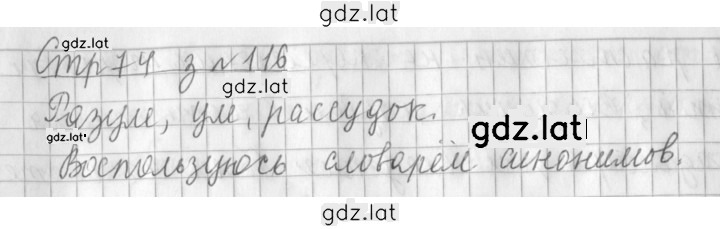 gdz.lat
gdz.lat
Стр 74 з №116
gdz.lat
Разум, ум, рассудок.
gdz.lat
gdz.lat
Воспользуюсь словарём синонимов.
gdz.lat